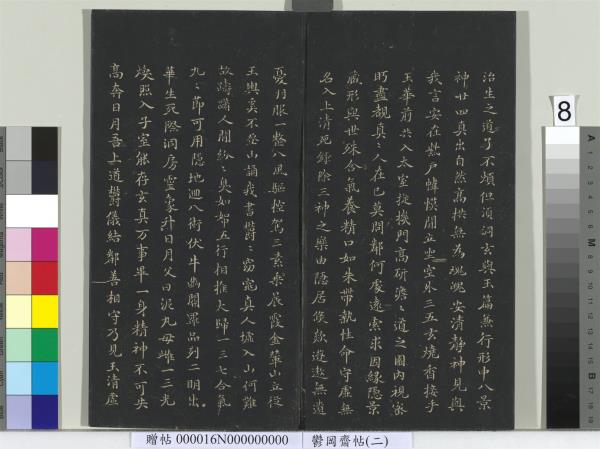 治生之道了不煩但須洞玄與玉篇兼行形中八景
神廿四真出自然高拱無為魂魄安清靜神見與
我言安在紫戶幃幙間立坐室外三五玄燒香接手
玉華前共入太室璇璣門高研澹々道之園內視密
眄盡覩真々人在己莫問鄰何處遠索求因緣隱景
藏形與世殊含氣養精口如朱帶執性命守虛無
名入上清死錄除三神之樂由隱居倏欻遊遨無遺
憂羽服一整八風驅控駕三素乘晨霞金輦正立從
玉輿奚不登山誦我書鬱々窈窕真人墟入山何難
故躊躇人間紛々臭如帤五行相推大歸一三五合氣
九々節可用隱地迴八術伏牛幽闕羅品列三明出
華生死際洞房靈象斗日月父曰泥丸母雌一三光
煥照入子室能存玄真万事畢一身精神不可失
高奔日月吾上道鬱儀結鄰善相守乃見玉清虛
8
贈帖 000016N000000000 鬱岡齋帖(二)